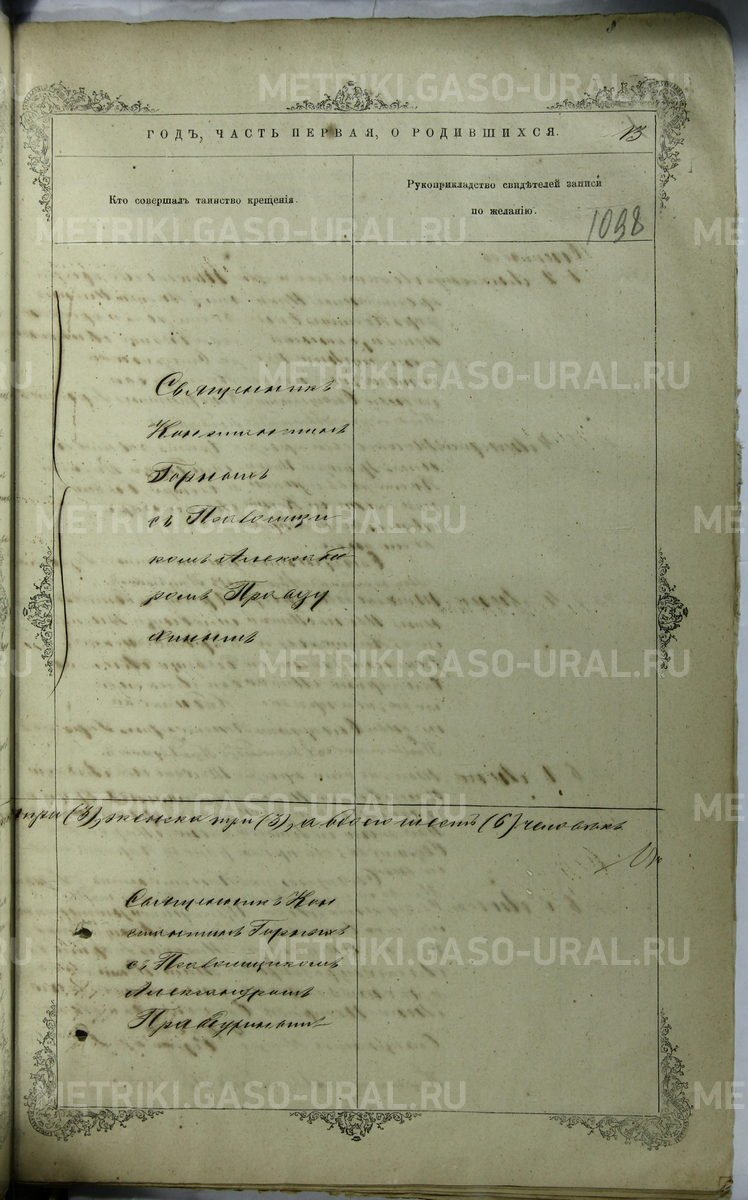 ГОДЪ, ЧАСТЬ ПЕРВАЯ, О РОДИВШИХСЯ.
13
Кто совершалъ таинство крещенія.
Рукоприкладство свидѣтелей записи
по желанію.
1098
Священникъ
Константинъ
съ Псаломщи-
комъ Александ
ромъ Правду
хинымъ
три (3), женска три (3), а обоего шесть (6) человѣкъ
Священникъ Кон
стантинъ
съ Псаломщикомъ
Александромъ
Правдухинымъ
METRIKI.GASO-URAL.RU